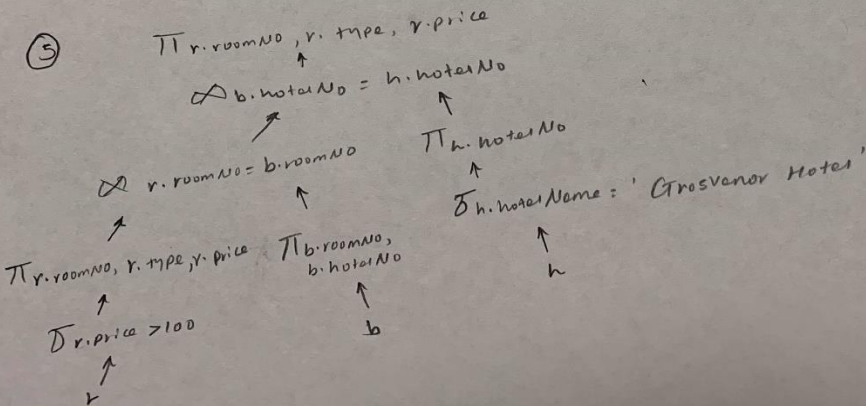 ⑤
π r.roomNo, r.type, r.price
∞ b.hotelNo = h.hotelNo
∞ r.roomNo = b.roomNo
π h.hotelNo
σ h.hotelName = 'Grosvenor Hotel'
h
π r.roomNo, r.type, r.price
π b.roomNo,
b.hotelNo
b
σ r.price >100
r